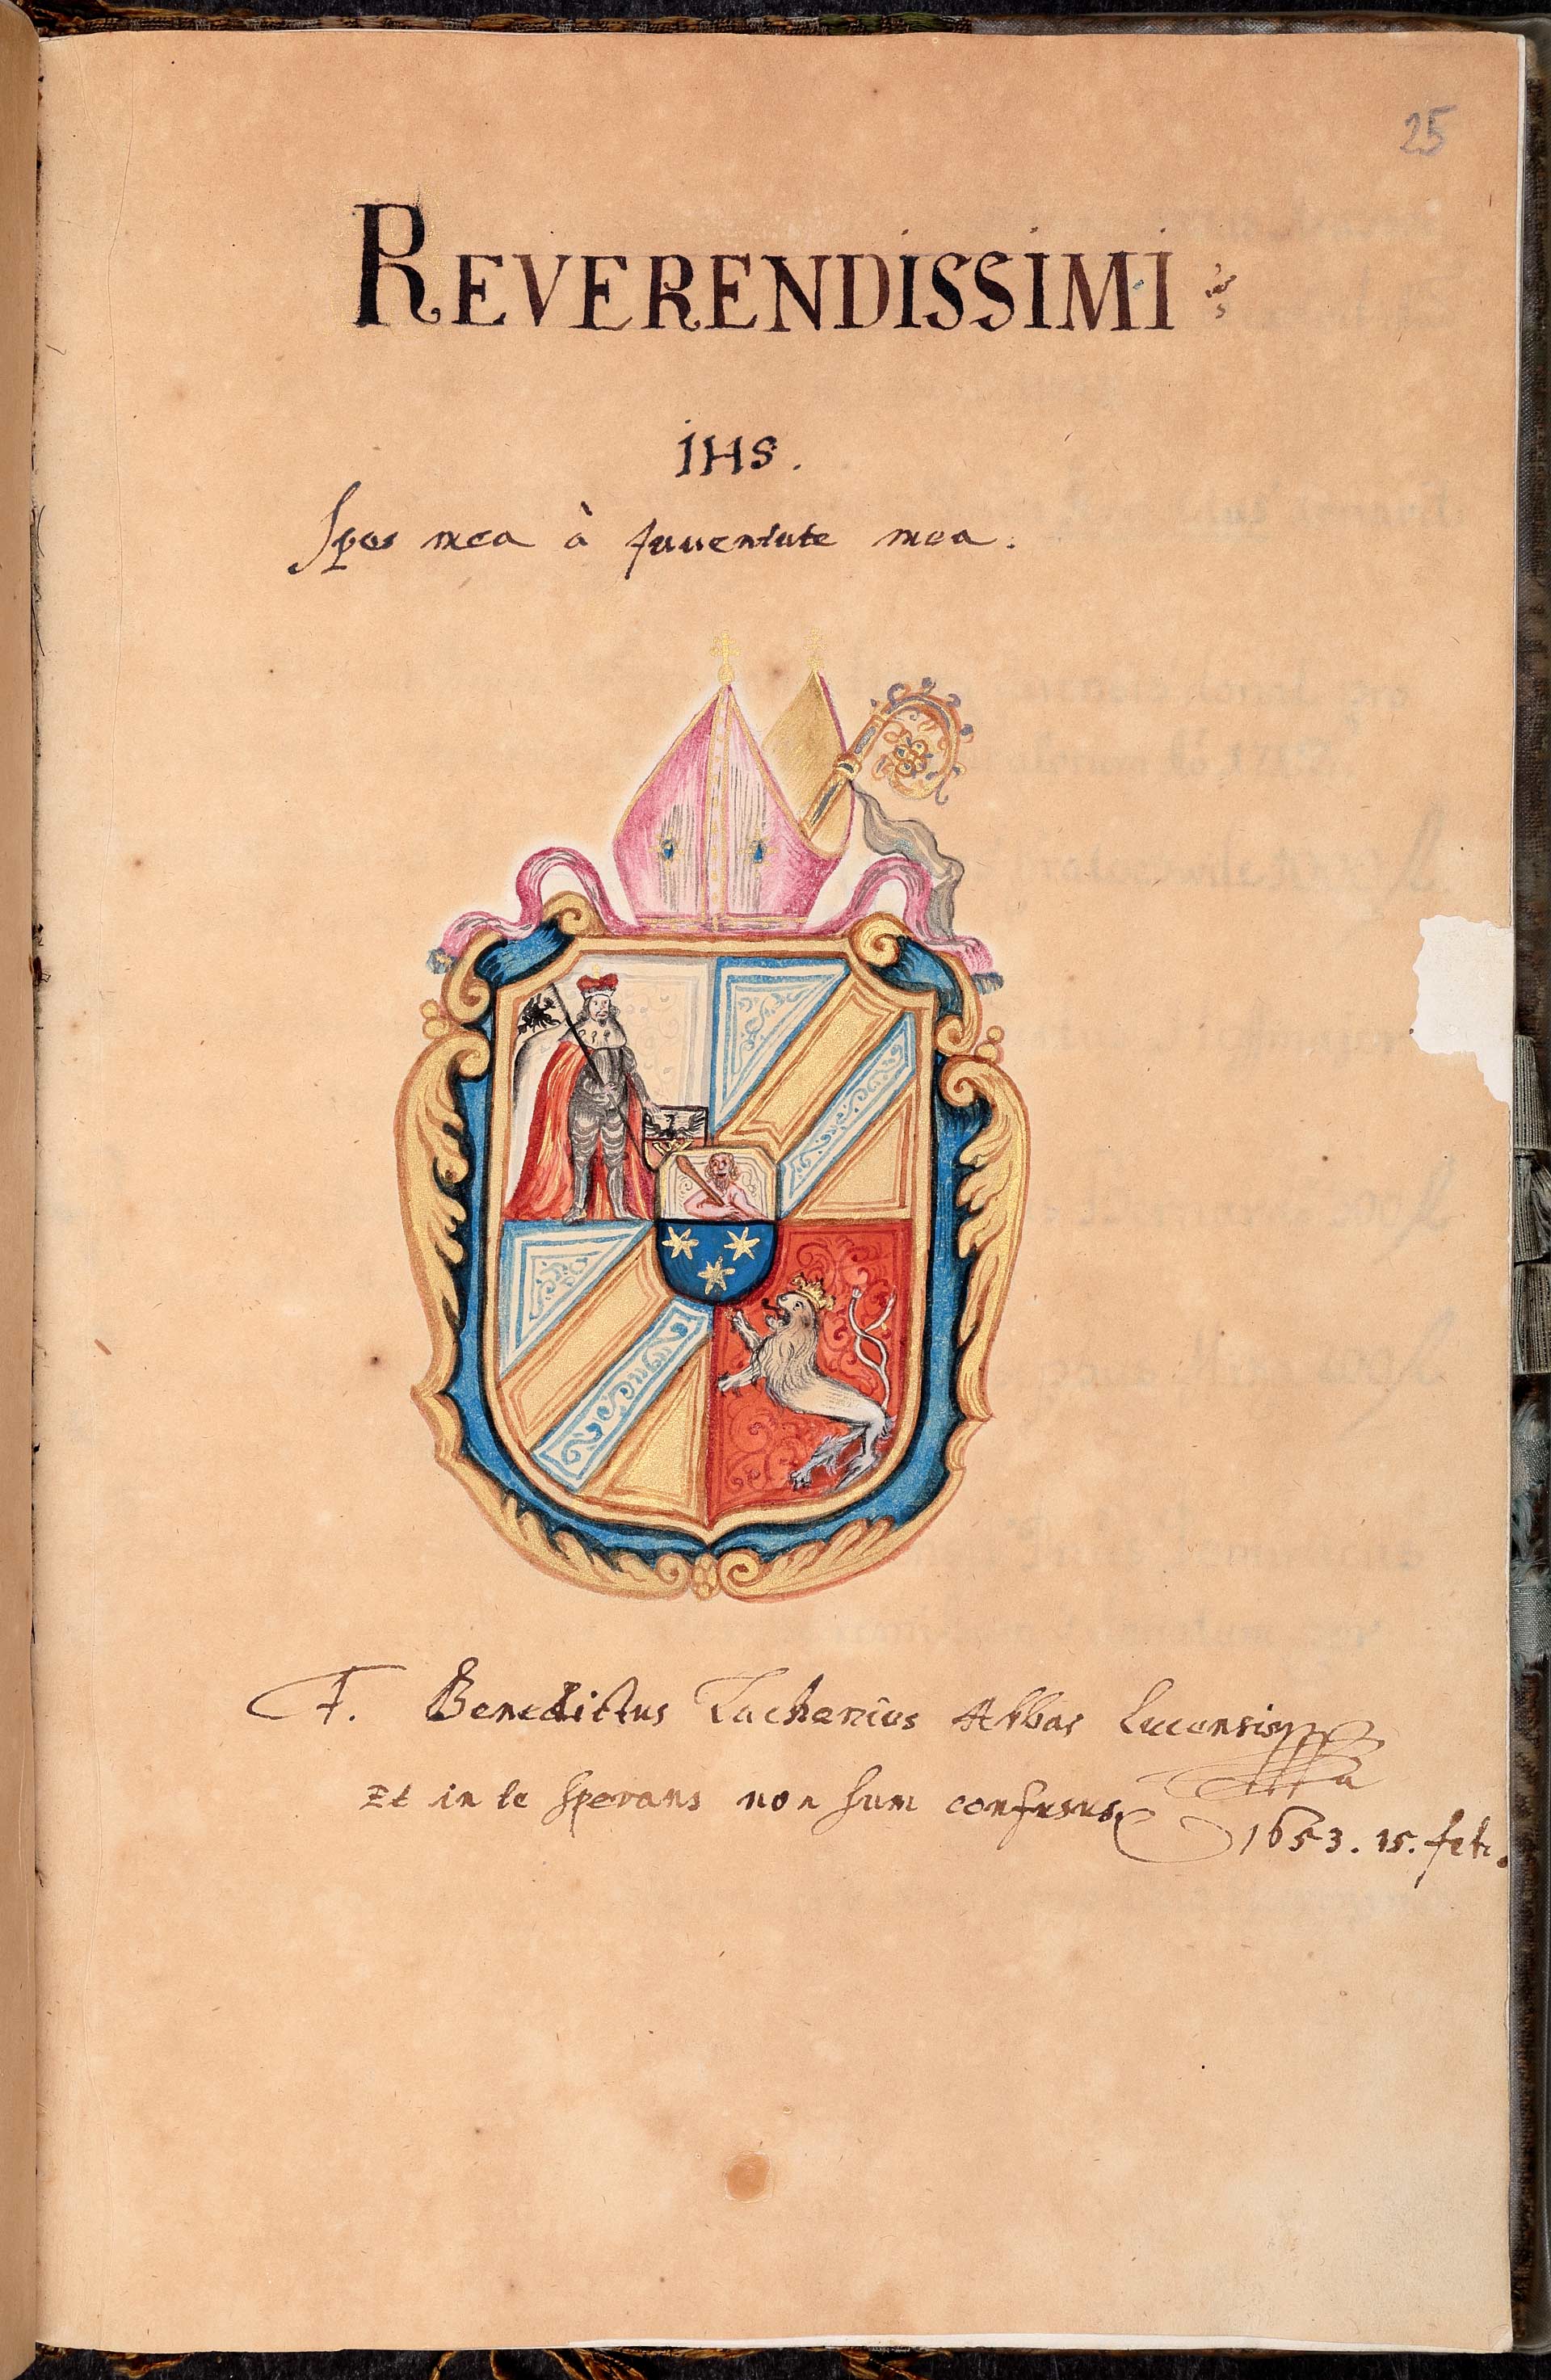 25
REVERENDISSIMI
IHS.
Spes mea à Juuentute mea.
F. Benedictus Lachenius Abbas Lucensis
Et in te Sperans non sum confusus
1653. 15. feb.